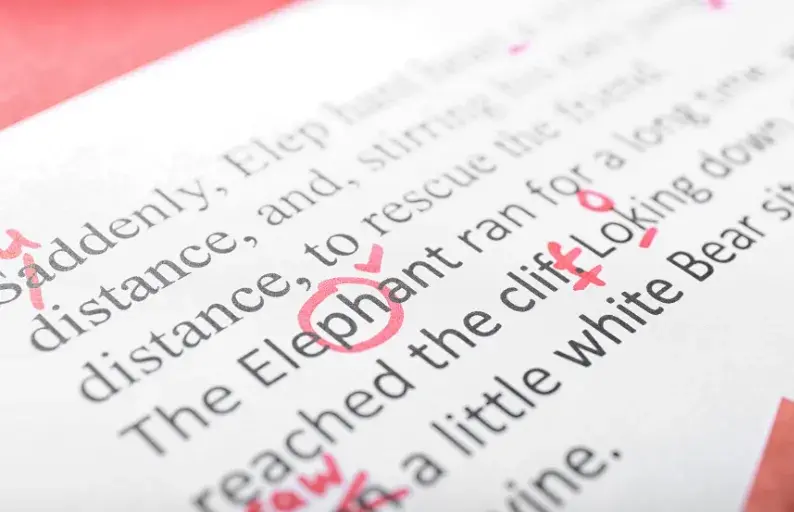 u
Saddenly, Elep hant
distance, and, stirring
distance, to rescue the friend.
The Elephant ran for a long time.
o
f
reached the clif. Loking down
a little white Bear